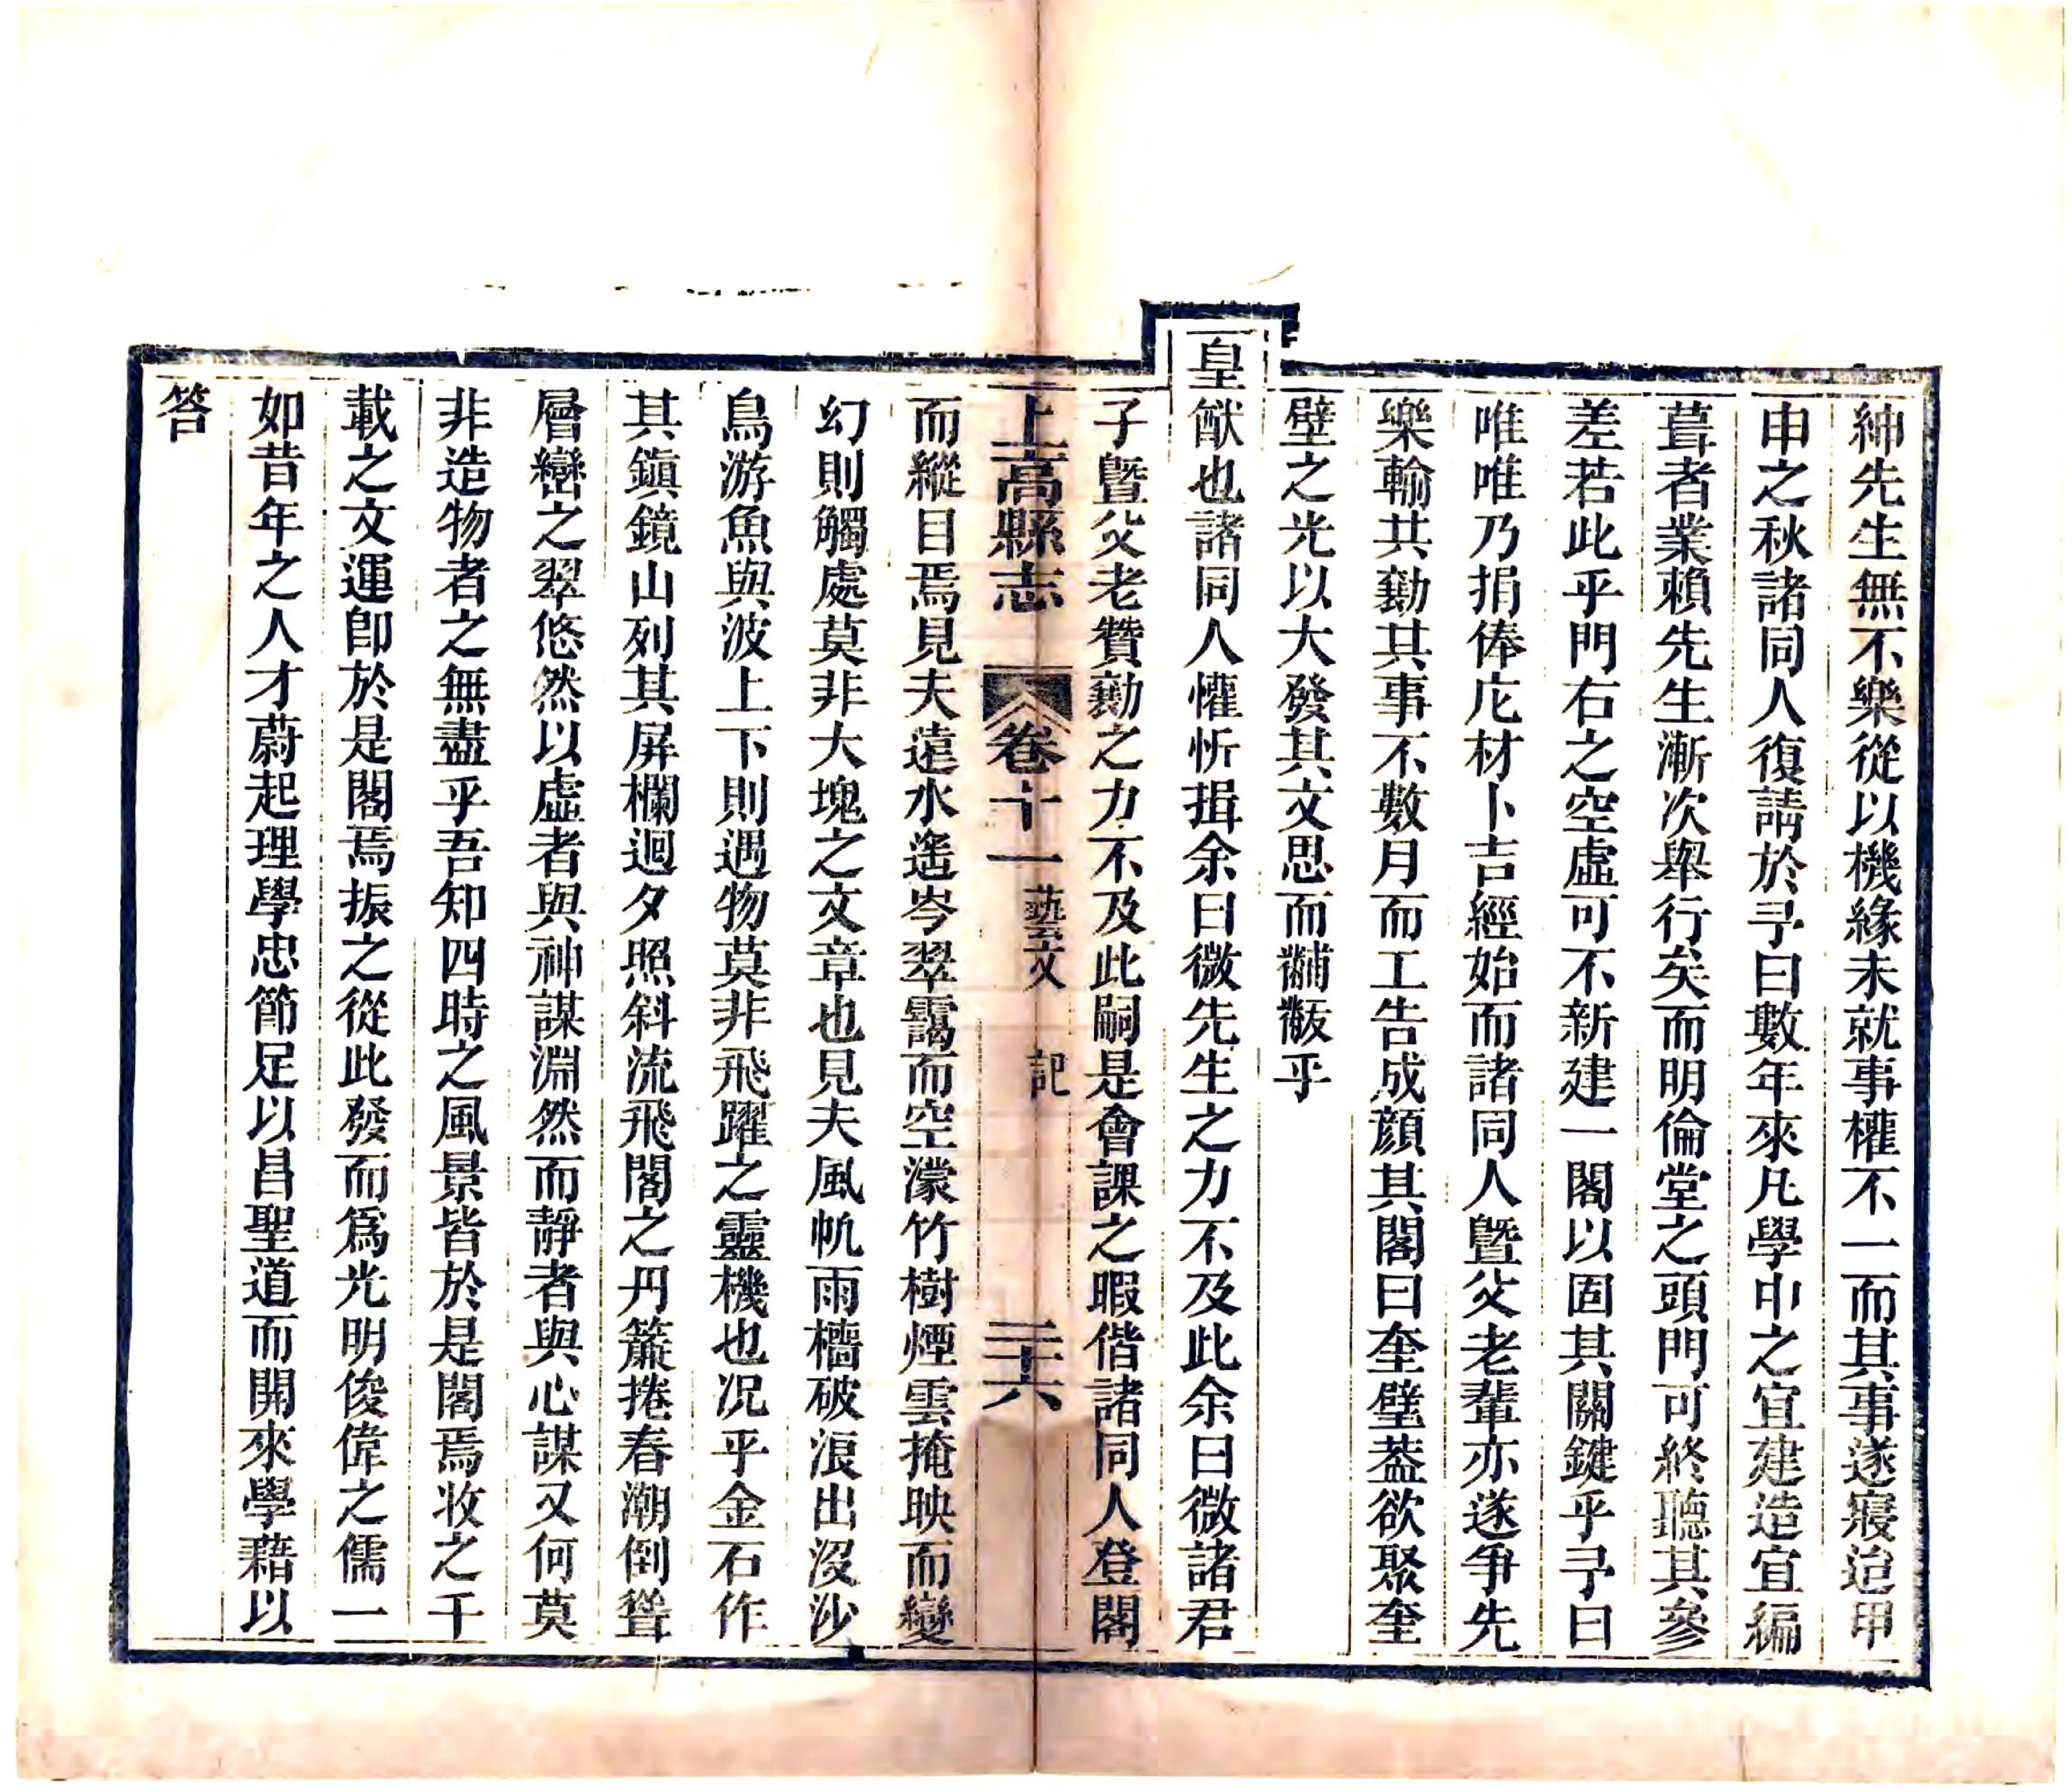 紳先生無不樂從以機緣未就事權不一而其事遂寢迨甲
申之秋諸同人復請於予曰數年來凡學中之宜建造宜編
葺者業賴先生漸次舉行矣而明倫堂之頭門可終聽其參
差若此乎門右之空虛可不新建一閣以固其關鍵乎予曰
唯唯乃捐俸庀材卜吉經始而諸同人曁父老輩亦遂爭先
樂輸共勷其事不數月而工告成顔其閣曰奎壁葢欲聚奎
壁之光以大發其文思而黼黻乎
皇猷也諸同人懽忻揖余曰微先生之力不及此余曰微諸君
子曁父老贊勷之力不及此嗣是會課之暇偕諸同人登閣
上高縣志 卷十一 藝文 記 三十六
而縱目焉見夫遠水遙岑翠靄而空濛竹樹煙雲掩映而變
幻則觸處莫非大塊之文章也見夫風帆雨檣破浪出沒沙
鳥游魚與波上下則遇物莫非飛躍之靈機也況乎金石作
其鎭鏡山列其屏欄迴夕照斜流飛閣之丹簾捲春潮倒聳
層巒之翠悠然以虛者與神謀淵然而靜者與心謀又何莫
非造物者之無盡乎吾知四時之風景皆於是閣焉收之千
載之文運卽於是閣焉振之從此發而爲光明俊偉之儒一
如昔年之人才蔚起理學忠節足以昌聖道而開來學藉以
答